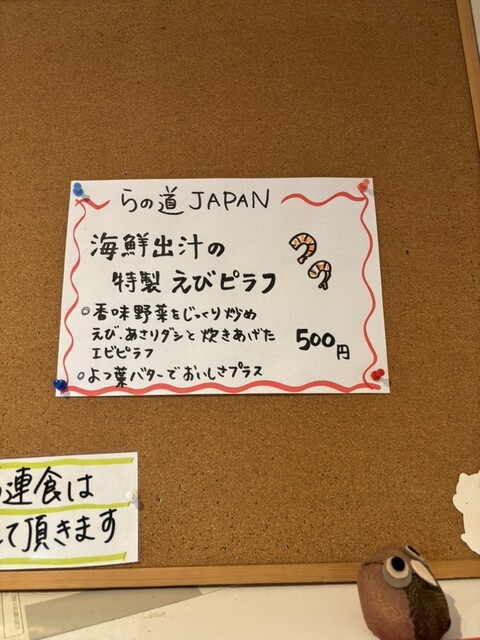 らの道 JAPAN
海鮮出汁の
特製 えびピラフ
◎香味野菜をじっくり炒め
えび、あさりダシと炊きあげた
エビピラフ
500円
◎よつ葉バターでおいしさプラス
連食は
て頂きます